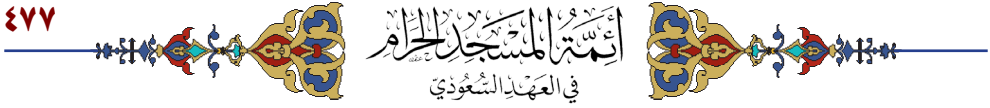 ٤٧٧
أَئِمَّةُ المَسْجِدِ الحَرَامِ
فِي العَهْدِ السُّعُودِيّ